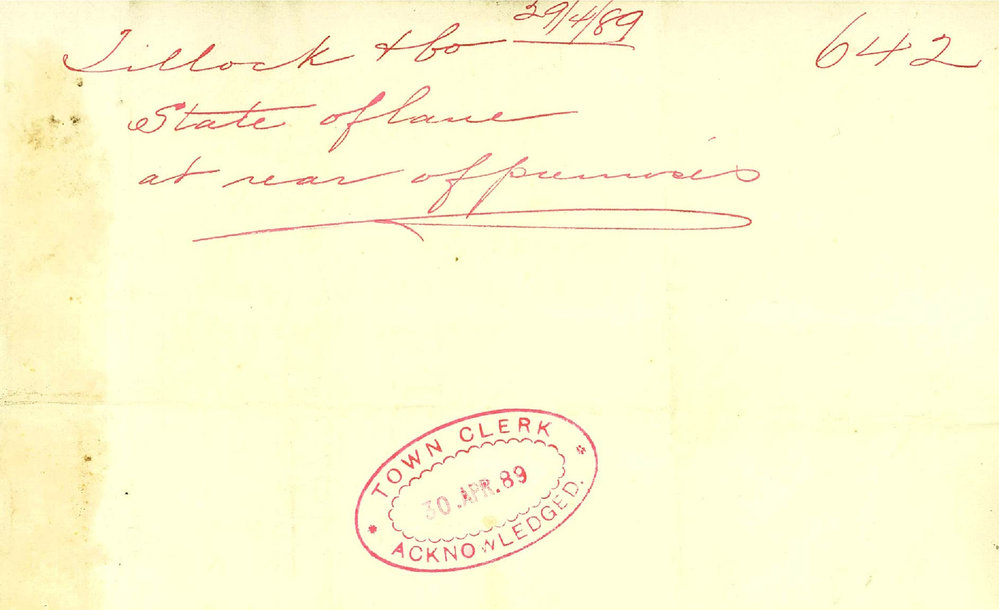 Tillock & Co 29/4/89 642
State of lane
at rear of premises
TOWN CLERK
30. APR. 89
ACKNOWLEDGED.